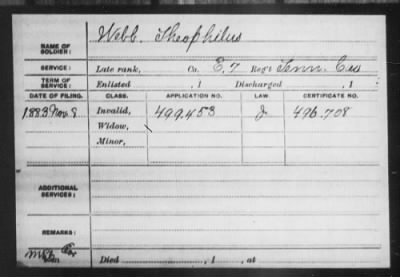 NAME OF SOLDIER: Webb, Theophilus
SERVICE: Late rank, Co. E, 7 Reg't Tenn. Cav
TERM OF SERVICE: Enlisted , 1 Discharged , 1
DATE OF FILING. CLASS. APPLICATION NO. LAW. CERTIFICATE NO.
1883 Nov. 9 Invalid, 499.453 J 496.708
Widow,
Minor,
ADDITIONAL SERVICES:
REMARKS:
Died , 1 , at